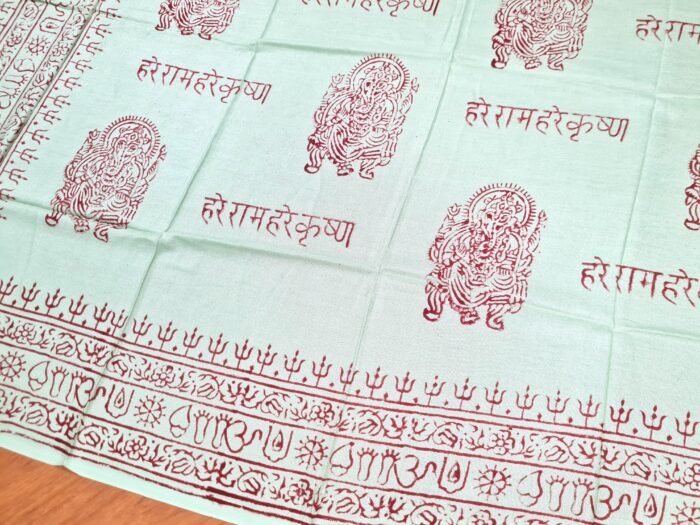 हरेरामहरेकृष्ण
हरेराम
हरेरामहरेकृष्ण
हरेरामहरेकृष्ण
हरेरामहरेकृष्ण
हरेरामहरेकृ